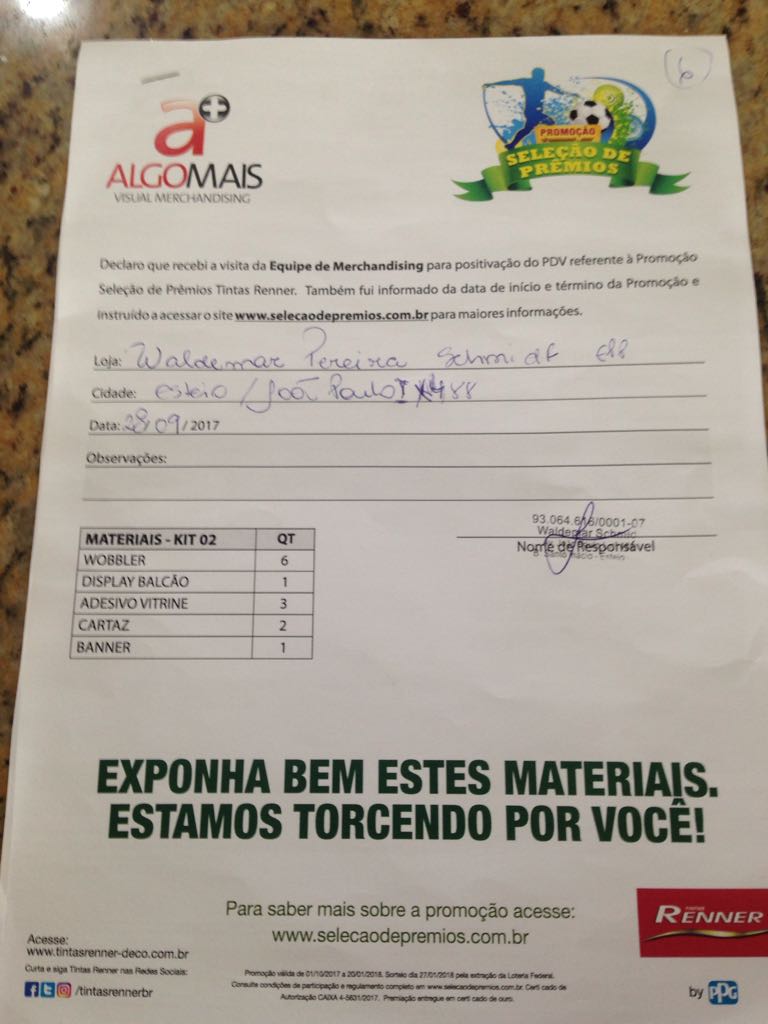 (6)
a+
ALGOMAIS
VISUAL MERCHANDISING
PROMOÇÃO
SELEÇÃO DE
PRÊMIOS
Declaro que recebi a visita da Equipe de Merchandising para positivação do PDV referente à Promoção
Seleção de Prêmios Tintas Renner. Também fui informado da data de início e término da Promoção e
instruído a acessar o site www.selecaodepremios.com.br para maiores informações.
Loja: Waldemar Pereira Schmidt
Cidade: esteio / João Paulo I 488
Data: 28/09/2017
Observações:
93.064.616/0001-07
Waldemar
Nome de Responsável
Esteio
MATERIAIS - KIT 02 QT
WOBBLER 6
DISPLAY BALCÃO 1
ADESIVO VITRINE 3
CARTAZ 2
BANNER 1
EXPONHA BEM ESTES MATERIAIS.
ESTAMOS TORCENDO POR VOCÊ!
Para saber mais sobre a promoção acesse:
www.selecaodepremios.com.br
RENNER
by PPG
Acesse:
www.tintasrenner-deco.com.br
Curta e siga Tintas Renner nas Redes Sociais:
/tintasrennerbr
Promoção válida de 01/10/2017 a 20/01/2018. Sorteio dia 27/01/2018 pela extração da Loteria Federal.
Consulte condições de participação e regulamento completo em www.selecaodepremios.com.br. Certi cado de
Autorização CAIXA 4-5631/2017. Premiação entregue em certi cado de ouro.